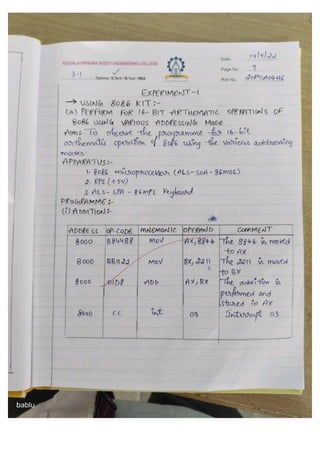 TEEGALA KRISHNA REDDY ENGINEERING COLLEGE
Diploma / B.Tech / M.Tech / MBA
3-1
Date: 14/9/22
Page No. 9
Roll No.
EXPERIMENT-1
→ USING 8086 KIT :-
(a) PERFORM FOR 16-BIT ARTHEMATIC OPERATIONS OF
8086 USING VARIOUS ADDRESSING MODE
AIM: To observe the programme for 16-bit
arthematic operation of 8086 using the various addressing
modes.
APPARATUS:-
1. 8086 microprocessor (ALS-SDA-86MOS)
2. RPS (+5V)
3. ALS-SDA-86MPL Keyboard
PROGRAMME:-
(i) ADDITION:-
ADDRESS OP-CODE MNEMONIC OPERAND COMMENT
8000 B84488 MOV AX, 8844 The 8844 is moved
to AX
8000 BB1122 MOV BX, 2211 The 2211 is moved
to BX
8000 01D8 ADD AX, BX The addition is
performed and
stored in AX
8000 CC int 03 Interrupt 03
bablu